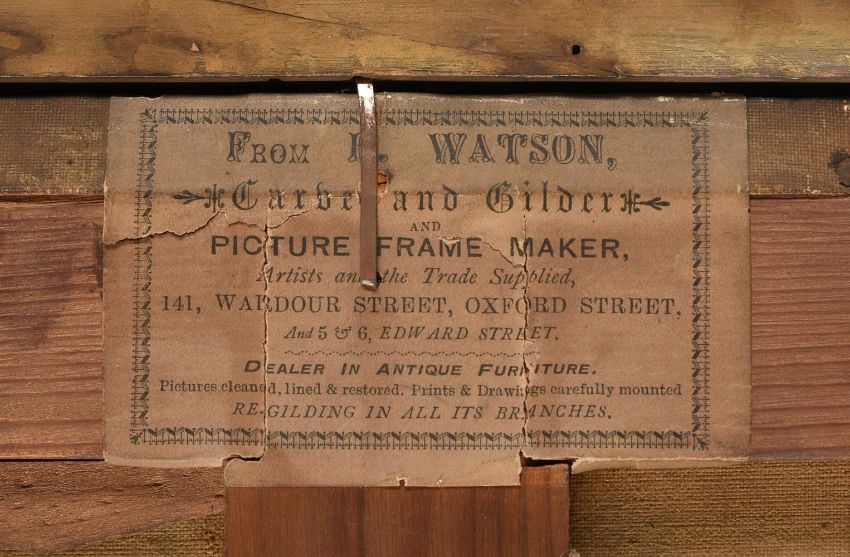 FROM . WATSON,
Carve and Gilder
AND
PICTURE FRAME MAKER,
Artists and the Trade Supplied,
141, WARDOUR STREET, OXFORD STREET,
And 5 & 6, EDWARD STREET.
DEALER IN ANTIQUE FURNITURE.
Pictures cleaned, lined & restored. Prints & Drawings carefully mounted
RE-GILDING IN ALL ITS BRANCHES.